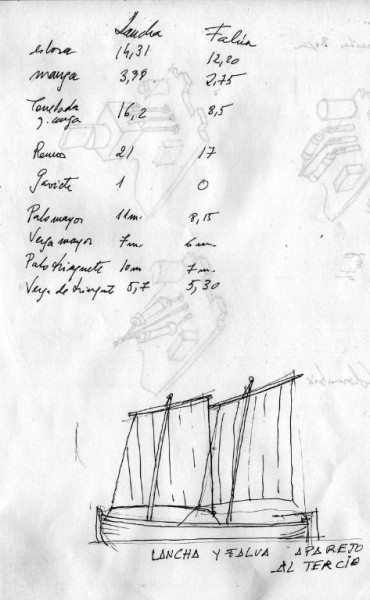 Lancha Falúa
eslora 14,31 12,20
manga 3,98 2,75
Tonelada 16,2 8,5
g. carga
Remos 21 17
Gaviete 1 0
Palo mayor 11 m. 8,15
Verga mayor 7 m. 6 m.
Palo trinquete 10 m 7 m.
Verga de trinquete 5,7 5,30
LANCHA Y FALUA APAREJO
AL TERCIO